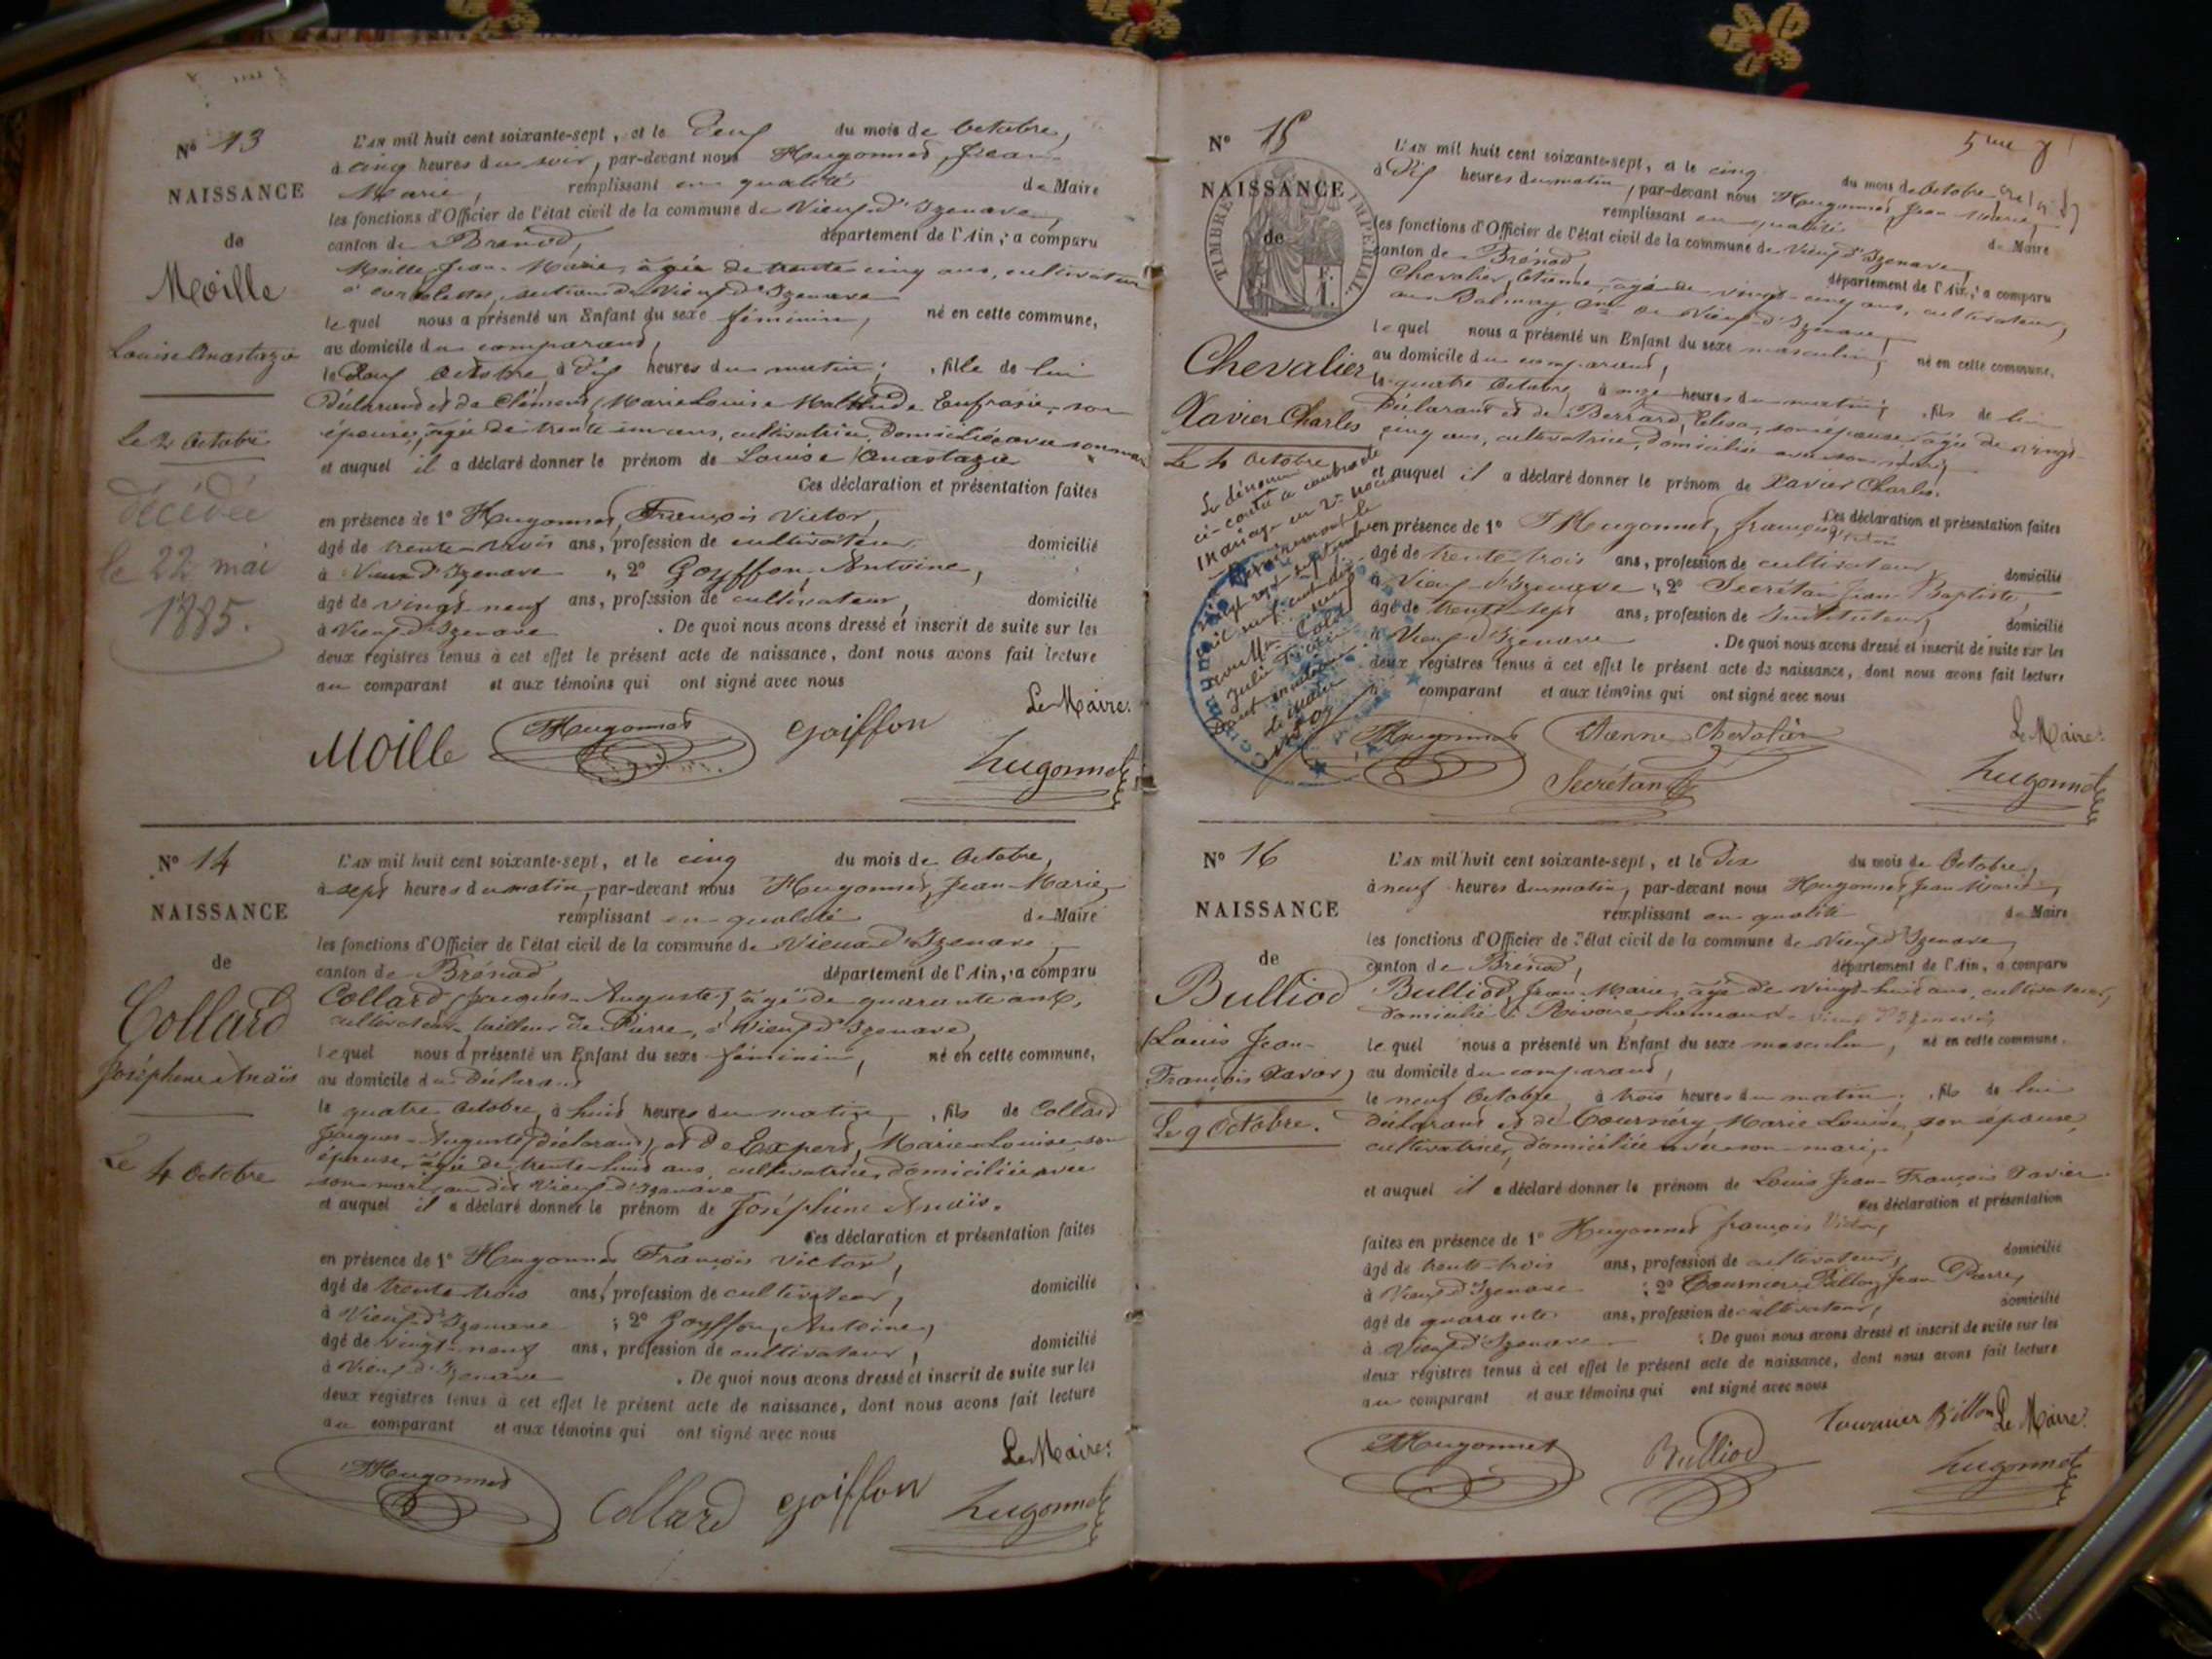 Nº 13
NAISSANCE
de
Moille
Louise Anastazie
Le 2 Octobre
décédée
le 22 mai
1885.
L'AN mil huit cent soixante-sept, et le deux du mois de Octobre,
à cinq heures du soir, par-devant nous Hugonnet, Jean-
Marie, remplissant en qualité de Maire
les fonctions d'Officier de l'état civil de la commune de Vieux d'Izenave,
canton de Brénod, département de l'Ain, a comparu
Moille Jean-Marie, âgé de trente cinq ans, cultivateur
section de Vieux d'Izenave
lequel nous a présenté un Enfant du sexe féminin, né en cette commune,
au domicile du comparant,
le deux Octobre, à dix heures du matin; fille de lui
Déclarant et de Clément, Marie Louise Mathilde Eufrasie, son
épouse, âgée de trente un ans, cultivatrice, domiciliée avec son mari
et auquel il a déclaré donner le prénom de Louise Anastazie
Ces déclaration et présentation faites
en présence de 1º Hugonnet, François Victor,
âgé de trente-trois ans, profession de cultivateur, domicilié
à Vieux d'Izenave, 2º Goyffon, Antoine,
âgé de vingt-neuf ans, profession de cultivateur, domicilié
à Vieux d'Izenave. De quoi nous avons dressé et inscrit de suite sur les
deux registres tenus à cet effet le présent acte de naissance, dont nous avons fait lecture
au comparant et aux témoins qui ont signé avec nous
Le Maire.
Moille Hugonnet Goiffon Hugonnet
Nº 14
NAISSANCE
de
Collard
Joséphine Anaïs
Le 4 Octobre
L'AN mil huit cent soixante-sept, et le cinq du mois de Octobre,
à sept heures du matin, par-devant nous Hugonnet, Jean-Marie,
remplissant en qualité de Maire
les fonctions d'Officier de l'état civil de la commune de Vieux d'Izenave,
canton de Brénod, département de l'Ain, a comparu
Collard, Jacques-Auguste, âgé de quarante ans,
cultivateur-tailleur de Pierre, à Vieux d'Izenave,
lequel nous a présenté un Enfant du sexe féminin, né en cette commune,
au domicile du Déclarant
le quatre Octobre, à huit heures du matin, fils de Collard
Jacques-Auguste, (déclarant), et de Expert, Marie-Louise son
épouse, âgée de trente-huit ans, cultivatrice, domiciliée avec
son mari, au dit Vieux d'Izenave
et auquel il a déclaré donner le prénom de Joséphine Anaïs.
Ces déclaration et présentation faites
en présence de 1º Hugonnet François Victor,
âgé de trente-trois ans, profession de cultivateur, domicilié
à Vieux d'Izenave; 2º Goyffon, Antoine,
âgé de vingt-neuf ans, profession de cultivateur, domicilié
à Vieux d'Izenave. De quoi nous avons dressé et inscrit de suite sur les
deux registres tenus à cet effet le présent acte de naissance, dont nous avons fait lecture
au comparant et aux témoins qui ont signé avec nous
Le Maire.
Hugonnet Collard Goiffon Hugonnet
5me
Nº 15
NAISSANCE
de
TIMBRE IMPERIAL
Chevalier
Xavier Charles
Le 4 Octobre
Le dénommé
ci-contre a contracté
Mariage en 2e noces
L'AN mil huit cent soixante-sept, et le cinq du mois de Octobre
à dix heures du matin, par-devant nous Hugonnet Jean Marie,
remplissant en qualité de Maire
les fonctions d'Officier de l'état civil de la commune de Vieux d'Izenave,
canton de Brénod, département de l'Ain, a comparu
Chevalier, Etienne, âgé de vingt-cinq ans, cultivateur,
au Balmay, de Vieux-d'Izenave,
lequel nous a présenté un Enfant du sexe masculin, né en cette commune,
au domicile du comparant,
le quatre Octobre, à onze heures du matin; fils de lui
Déclarant et de Berrard, Elisa, son épouse, âgée de vingt-
cinq ans, cultivatrice, domiciliée avec son mari,
et auquel il a déclaré donner le prénom de Xavier Charles.
Ces déclaration et présentation faites
en présence de 1º Hugonnet, françois Victor
âgé de trente-trois ans, profession de cultivateur, domicilié
à Vieux-d'Izenave, 2º Secrétan Jean Baptiste,
âgé de trente-sept ans, profession de Instituteur, domicilié
à Vieux d'Izenave. De quoi nous avons dressé et inscrit de suite sur les
deux registres tenus à cet effet le présent acte de naissance, dont nous avons fait lecture
comparant et aux témoins qui ont signé avec nous
Le Maire.
Hugonnet Etienne Chevalier
Secrétan Hugonnet
Nº 16
NAISSANCE
de
Bulliod
(Louis Jean-
François Xavier)
Le 9 Octobre.
L'AN mil huit cent soixante-sept, et le dix du mois de Octobre,
à neuf heures du matin, par-devant nous Hugonnet Jean Marie,
remplissant en qualité de Maire
les fonctions d'Officier de l'état civil de la commune de Vieux d'Izenave,
canton de Brénod, département de l'Ain, a comparu
Bulliod, Jean-Marie, âgé de vingt-huit ans, cultivateur,
domicilié à Rivoire hameau de Vieux d'Izenave,
lequel nous a présenté un Enfant du sexe masculin, né en cette commune,
au domicile du comparant,
le neuf Octobre, à trois heures du matin; fils de lui
déclarant et de Tournéry Marie Louise, son épouse,
cultivatrice, domiciliée avec son mari,
et auquel il a déclaré donner le prénom de Louis Jean-François Xavier.
Ces déclaration et présentation
faites en présence de 1º Hugonnet françois Victor,
âgé de trente-trois ans, profession de cultivateur, domicilié
à Vieux d'Izenave; 2º Tournier-Billon, Jean Pierre,
âgé de quarante ans, profession de cultivateur, domicilié
à Vieux d'Izenave. De quoi nous avons dressé et inscrit de suite sur les
deux registres tenus à cet effet le présent acte de naissance, dont nous avons fait lecture
au comparant et aux témoins qui ont signé avec nous
Tournier Billon Le Maire.
Hugonnet Bulliod Hugonnet